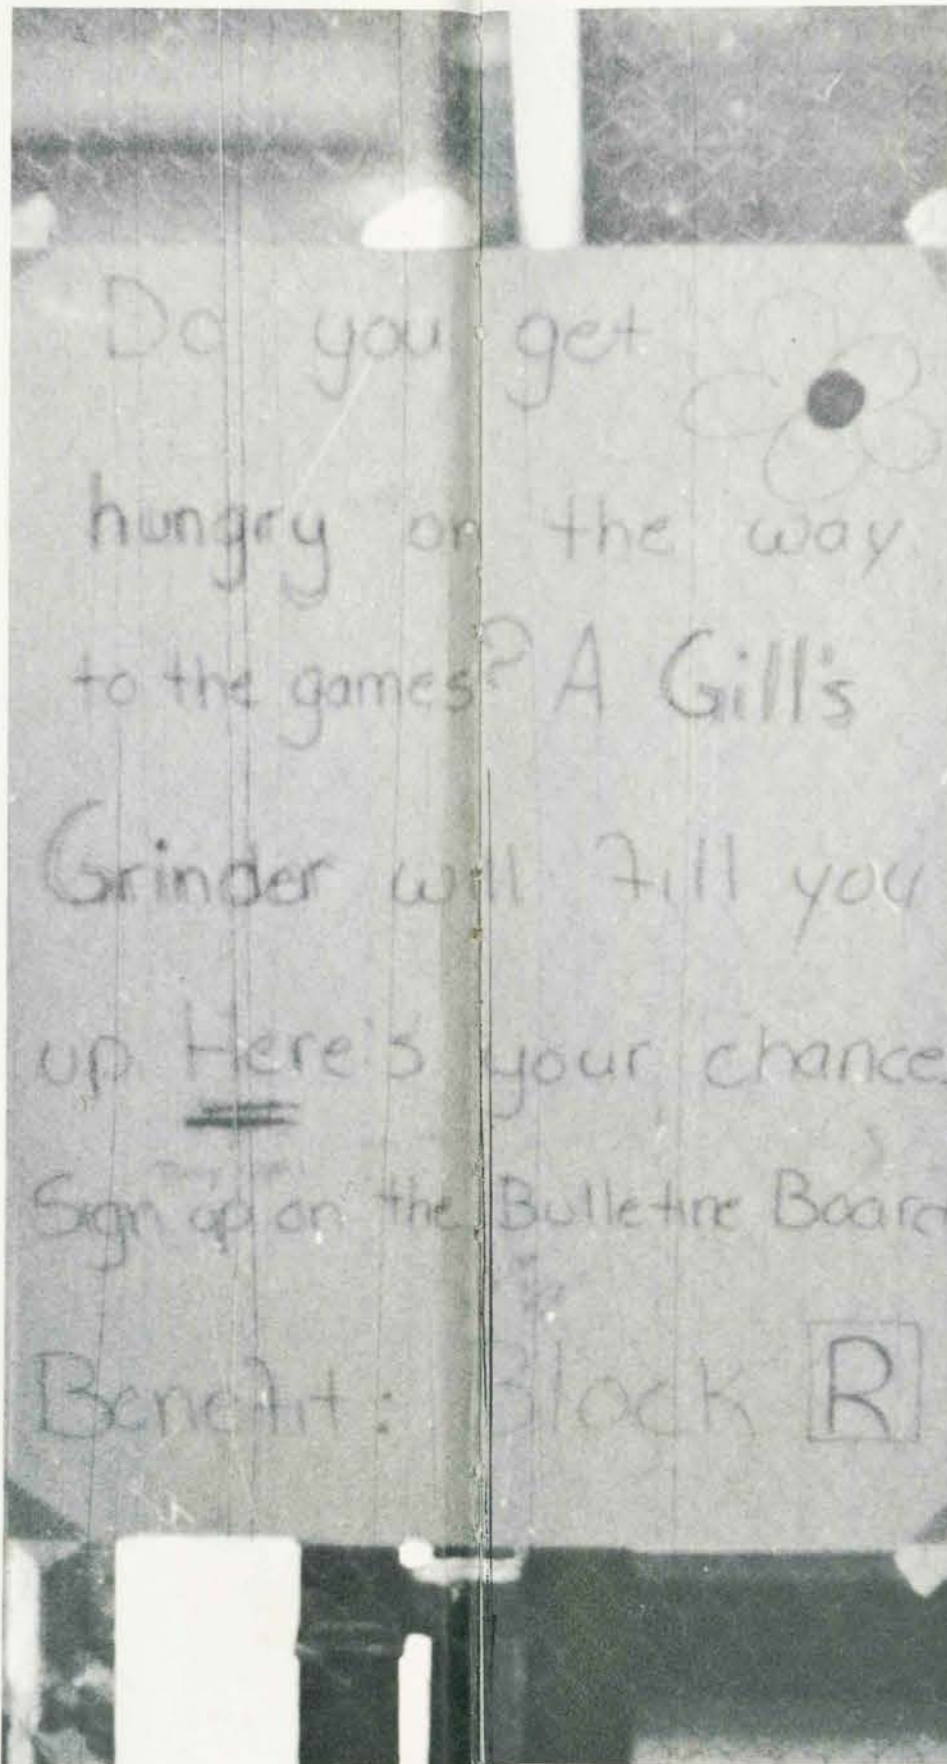 Do you get
hungry on the way
to the games? A Gill's
Grinder will fill you
up Here's your chance
Sign up on the Bulletine Board
Benefit: Block R